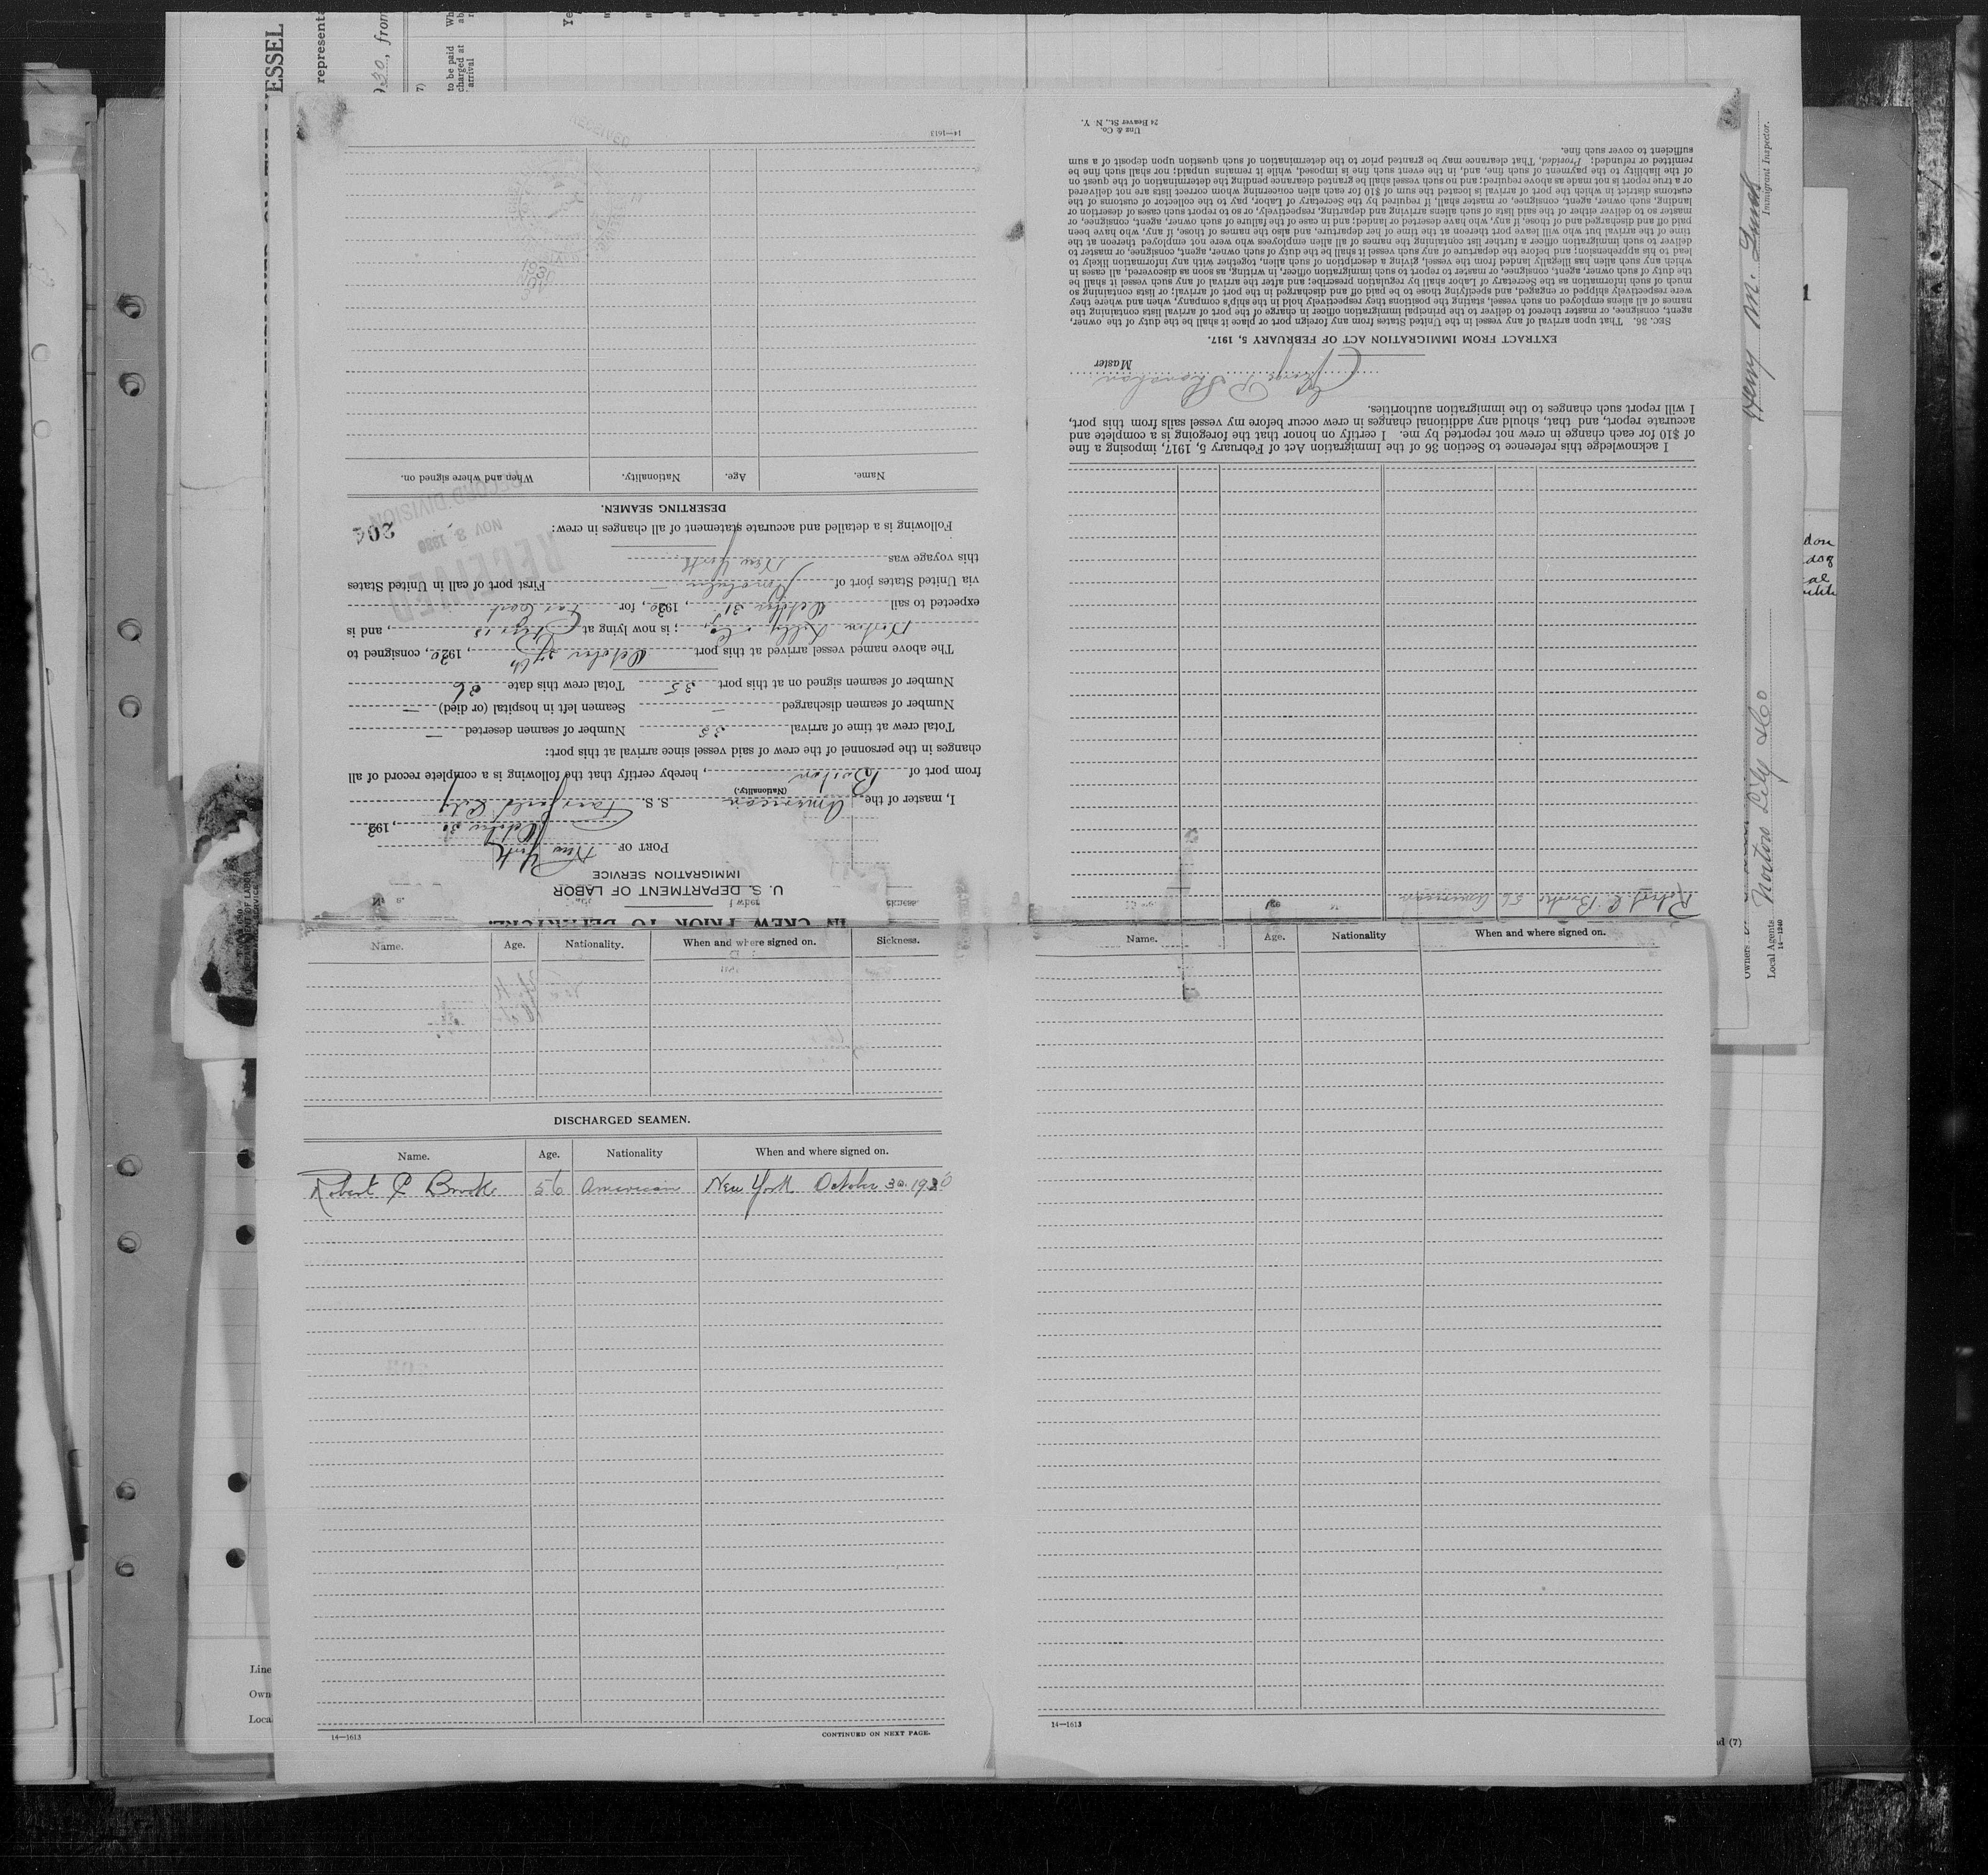 ESSEL
represent
930, from
to be paid
charged at
arrival
IN CREW PRIOR TO DEPARTURE.
U. S. DEPARTMENT OF LABOR
IMMIGRATION SERVICE
PORT OF New York
October 30, 193
I, master of the American S. S. Fairfield City
(Nationality)
from port of Boston, hereby certify that the following is a complete record of all
changes in the personnel of the crew of said vessel since arrival at this port:
Total crew at time of arrival 35 Number of seamen deserted —
Number of seamen discharged — Seamen left in hospital (or died) —
Number of seamen signed on at this port 35 Total crew this date 36
The above named vessel arrived at this port October 29th, 1920, consigned to
Norton Lilly & Co; is now lying at Pier 18, and is
expected to sail October 31, 1930, for Far East
via United States port of Honolulu First port of call in United States
this voyage was New York
Following is a detailed and accurate statement of all changes in crew:
204
RECEIVED
NOV 3 1930
RECORD DIVISION
DESERTING SEAMEN.
Name. Age. Nationality. When and where signed on.
14—1613
Robert C. Brooke 56 American
I acknowledge this reference to Section 36 of the Immigration Act of February 5, 1917, imposing a fine
of $10 for each change in crew not reported by me. I certify on honor that the foregoing is a complete and
accurate report, and that, should any additional changes in crew occur before my vessel sails from this port,
I will report such changes to the immigration authorities.
George P. Master
EXTRACT FROM IMMIGRATION ACT OF FEBRUARY 5, 1917.
SEC. 36. That upon arrival of any vessel in the United States from any foreign port or place it shall be the duty of the owner,
agent, consignee, or master thereof to deliver to the principal immigration officer in charge of the port of arrival lists containing the
names of all aliens employed on such vessel, stating the positions they respectively hold in the ship's company, when and where they
were respectively shipped or engaged, and specifying those to be paid off and discharged in the port of arrival; or lists containing so
much of such information as the Secretary of Labor shall by regulation prescribe; and after the arrival of any such vessel it shall be
the duty of such owner, agent, consignee, or master to report to such immigration officer, in writing, as soon as discovered, all cases in
which any such alien has illegally landed from the vessel, giving a description of such alien, together with any information likely to
lead to his apprehension; and before the departure of any such vessel it shall be the duty of such owner, agent, consignee, or master to
deliver to such immigration officer a further list containing the names of all alien employees who were not employed thereon at the
time of the arrival but who will leave port thereon at the time of her departure, and also the names of those, if any, who have been
paid off and discharged and of those, if any, who have deserted or landed; and in case of the failure of such owner, agent, consignee, or
master so to deliver either of the said lists of such aliens arriving and departing, respectively, or so to report such cases of desertion or
landing, such owner, agent, consignee, or master shall, if required by the Secretary of Labor, pay to the collector of customs of the
customs district in which the port of arrival is located the sum of $10 for each alien concerning whom correct lists are not delivered
or a true report is not made as above required; and no such vessel shall be granted clearance pending the determination of the question
of the liability to the payment of such fine, and, in the event such fine is imposed, while it remains unpaid; nor shall such fine be
remitted or refunded; Provided, That clearance may be granted prior to the determination of such question upon deposit of a sum
sufficient to cover such fine.
Unz & Co.
24 Beaver St., N. Y.
Henry M.
Immigrant Inspector.
Owners
Local Agents Norton Lilly & Co
14—1240
Name. Age. Nationality. When and where signed on. Sickness.
DISCHARGED SEAMEN.
Name. Age. Nationality When and where signed on.
Robert C Brooke 56 American New York October 30. 1930
14—1613 CONTINUED ON NEXT PAGE.
Name. Age. Nationality When and where signed on.
14—1613
Line
Own
Loca
(7)